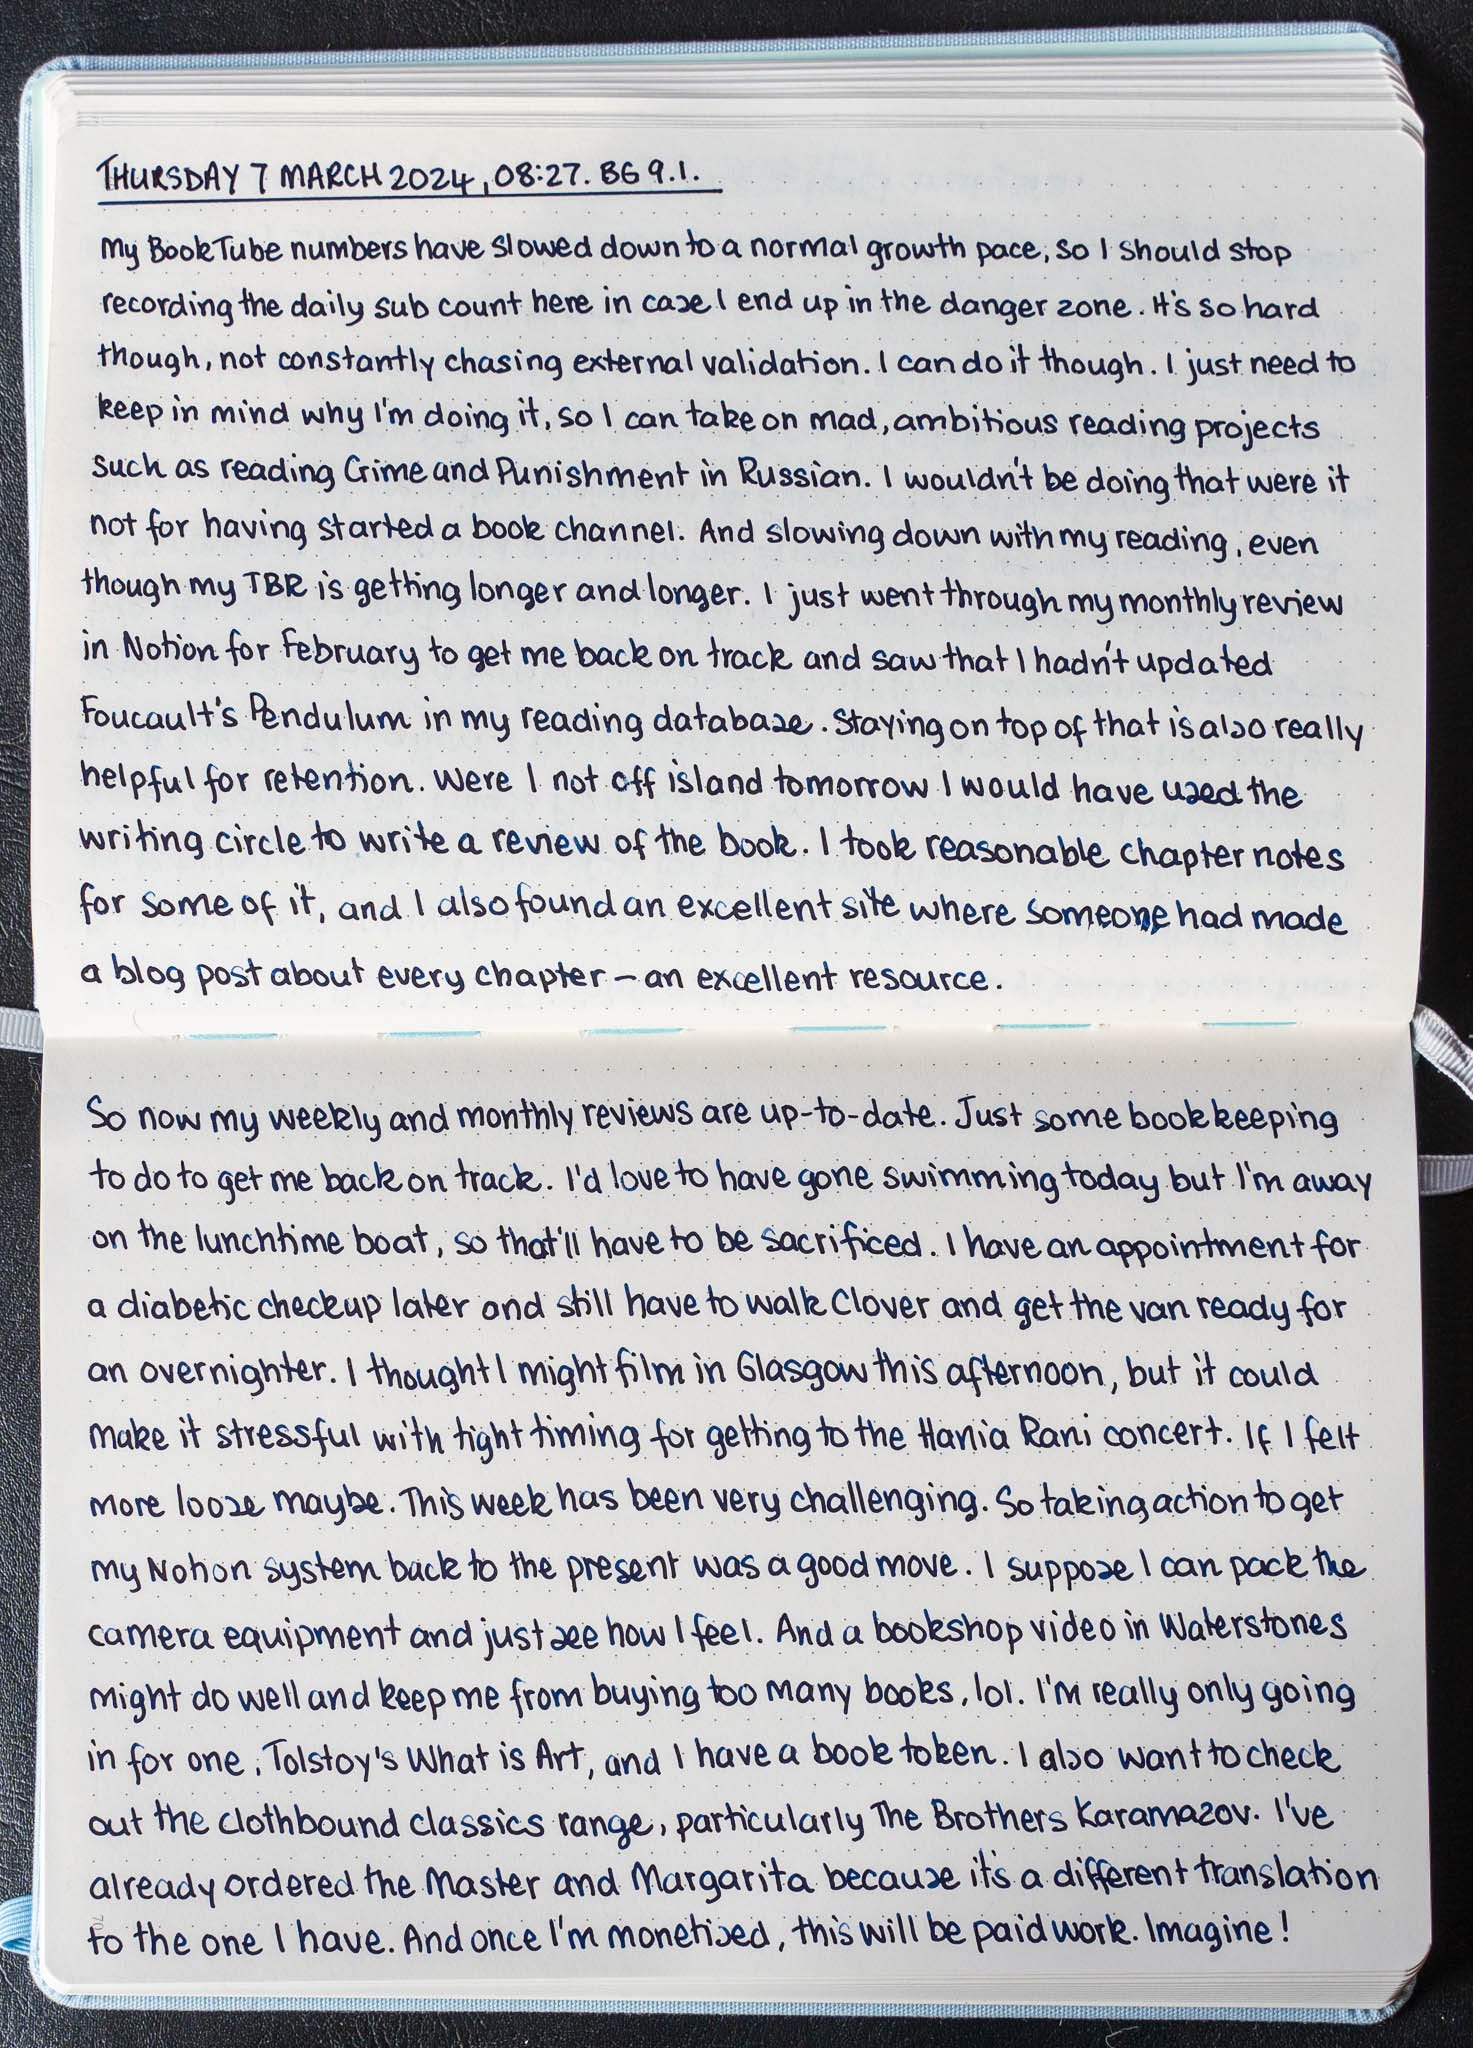 THURSDAY 7 MARCH 2024, 08:27. BG 9.1.
My BookTube numbers have slowed down to a normal growth pace, so I should stop
recording the daily sub count here in case I end up in the danger zone. It's so hard
though, not constantly chasing external validation. I can do it though. I just need to
keep in mind why I'm doing it, so I can take on mad, ambitious reading projects
such as reading Crime and Punishment in Russian. I wouldn't be doing that were it
not for having started a book channel. And slowing down with my reading, even
though my TBR is getting longer and longer. I just went through my monthly review
in Notion for February to get me back on track and saw that I hadn't updated
Foucault's Pendulum in my reading database. Staying on top of that is also really
helpful for retention. Were I not off island tomorrow I would have used the
writing circle to write a review of the book. I took reasonable chapter notes
for some of it, and I also found an excellent site where someone had made
a blog post about every chapter – an excellent resource.
So now my weekly and monthly reviews are up-to-date. Just some bookkeeping
to do to get me back on track. I'd love to have gone swimming today but I'm away
on the lunchtime boat, so that'll have to be sacrificed. I have an appointment for
a diabetic checkup later and still have to walk Clover and get the van ready for
an overnighter. I thought I might film in Glasgow this afternoon, but it could
make it stressful with tight timing for getting to the Hania Rani concert. If I felt
more loose maybe. This week has been very challenging. So taking action to get
my Notion system back to the present was a good move. I suppose I can pack the
camera equipment and just see how I feel. And a bookshop video in Waterstones
might do well and keep me from buying too many books, lol. I'm really only going
in for one, Tolstoy's What is Art, and I have a book token. I also want to check
out the clothbound classics range, particularly The Brothers Karamazov. I've
already ordered the Master and Margarita because it's a different translation
to the one I have. And once I'm monetised, this will be paid work. Imagine!
70